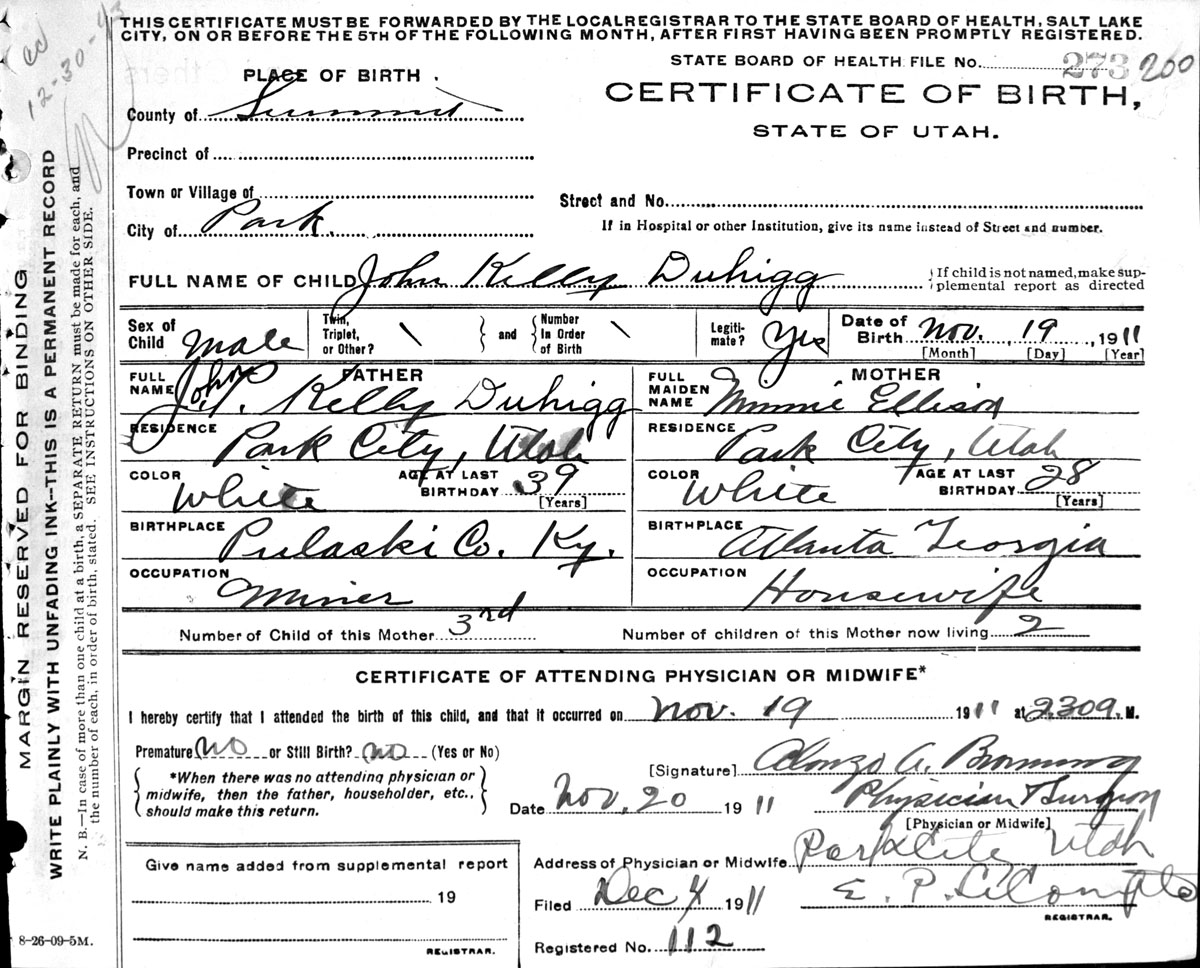 THIS CERTIFICATE MUST BE FORWARDED BY THE LOCAL REGISTRAR TO THE STATE BOARD OF HEALTH, SALT LAKE
CITY, ON OR BEFORE THE 5TH OF THE FOLLOWING MONTH, AFTER FIRST HAVING BEEN PROMPTLY REGISTERED.
12-30-43
STATE BOARD OF HEALTH FILE No. 273 200
PLACE OF BIRTH.
CERTIFICATE OF BIRTH,
STATE OF UTAH.
County of Summit
Precinct of
Town or Village of
Street and No.
City of Park.
If in Hospital or other Institution, give its name instead of Street and number.
FULL NAME OF CHILD John Kelly Duhigg
If child is not named, make sup-
plemental report as directed
Sex of Child Male Twin, Triplet, or Other? \ and Number In Order of Birth \ Legiti-mate? Yes Date of Birth Nov. 19, 1911
[Month] [Day] [Year]
FATHER MOTHER
FULL NAME John J. Kelly Duhigg FULL MAIDEN NAME Minnie Ellison
RESIDENCE Park City, Utah RESIDENCE Park City, Utah
COLOR White AGE AT LAST BIRTHDAY 39 [Years] COLOR White AGE AT LAST BIRTHDAY 28 [Years]
BIRTHPLACE Pulaski Co. Ky. BIRTHPLACE Atlanta Georgia
OCCUPATION Miner OCCUPATION Housewife
Number of Child of this Mother 3rd Number of children of this Mother now living 2
CERTIFICATE OF ATTENDING PHYSICIAN OR MIDWIFE*
I hereby certify that I attended the birth of this child, and that it occurred on Nov. 19 1911 at M.
Premature No or Still Birth? No (Yes or No)
*When there was no attending physician or
midwife, then the father, householder, etc.,
should make this return.
[Signature] Alonzo A.
Date Nov. 20 1911 Physician & Surgeon
[Physician or Midwife]
Give name added from supplemental report
19
REGISTRAR.
Address of Physician or Midwife Park City Utah
Filed Dec 4 1911 E. P.
REGISTRAR.
Registered No. 112
8-26-09-5M.
MARGIN RESERVED FOR BINDING
WRITE PLAINLY WITH UNFADING INK--THIS IS A PERMANENT RECORD
N. B.—In case of more than one child at a birth, a SEPARATE RETURN must be made for each, and
the number of each, in order of birth, stated. SEE INSTRUCTIONS ON OTHER SIDE.